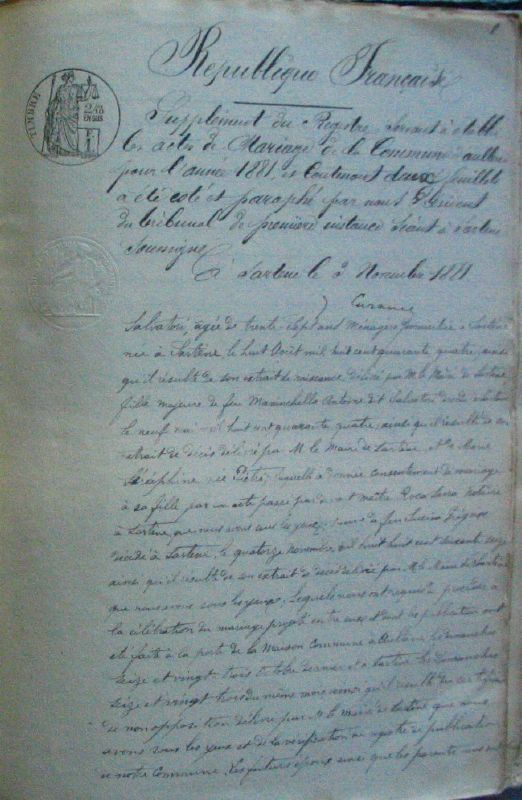 République Française
Supplément du Registre servant à établir
les actes de Mariage de la Commune d'aullène
pour l'année 1881, et Contenant deux feuillets
a été coté et paraphé par nous Président
du tribunal de première instance séant à Sartene
Soussigné
à Sartene le 2 Novembre 1881
TIMBRE
Salvatori, âgée de trente sept ans Ménagère domiciliée à Sartène
née à Sartène le huit Août mil huit cent quarante quatre, ainsi
qu'il résulte de son extrait de naissance délivré par M. le Maire de Sartène
fille majeure de feu Antoine Salvatori décédé à Sartène
le neuf mai mil huit cent quarante quatre, ainsi qu'il résulte de son
extrait de décès délivré par M. le Maire de Sartène, et de Marie
Séraphine née Pietri, laquelle a donnée consentement de mariage
à sa fille par un acte passé par devant maître Roca Serra notaire
à Sartène, que nous avons sous les yeux, veuve de feu
décédé à Sartène, le quatorze novembre, mil huit cent soixante
ainsi qu'il résulte de son extrait de décès délivré par M. le Maire de Sartène
que nous avons sous les yeux. Lesquels nous ont requis de procéder à
la célébration du mariage projeté entre eux et dont les publications ont
été faite à la porte de la Maison Commune à Aullène les dimanches
seize et vingt trois Octobre dernier et à Sartène les Dimanches
seize et vingt trois du même mois ainsi qu'il résulte du certificat
de non opposition délivré par M. le maire de Sartène que nous
avons sous les yeux et de la vérification au registre de publication
de notre Commune. Les futurs époux ainsi que les parents